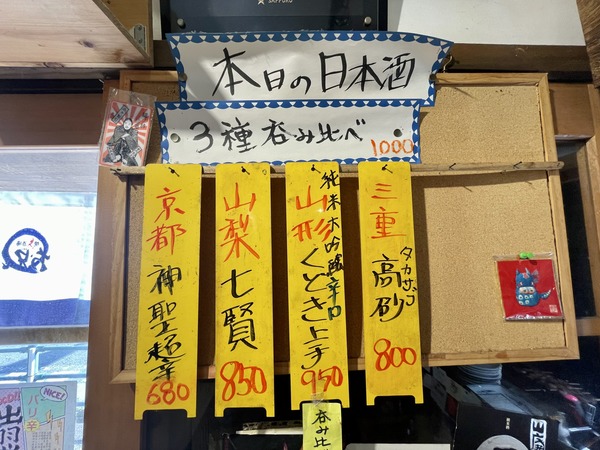 SAPPORO
本日の日本酒
3種呑み比べ
1000
三重
高砂
タカサゴ
800
山形
純米大吟醸辛口
くどき上手
950
山梨
七賢
850
京都
神聖超辛
680
呑み比
NICE!
バリ
辛